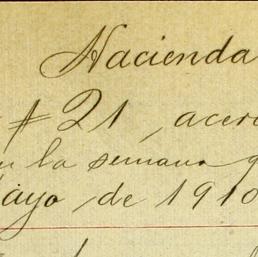 Hacienda
# 21, acer
en la semana q
ayo, de 1910